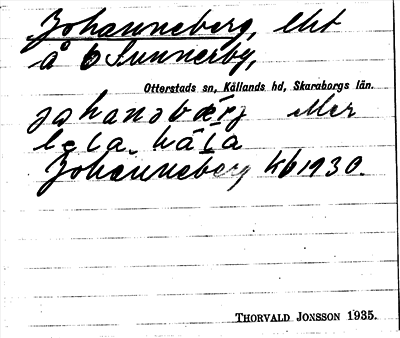 Johanneberg, lht
å 6 Sunnerby,
Otterstads sn, Kållands hd, Skaraborgs län.
johanəbærj eller
Johanneberg kb 1930.
THORVALD JONSSON 1935.